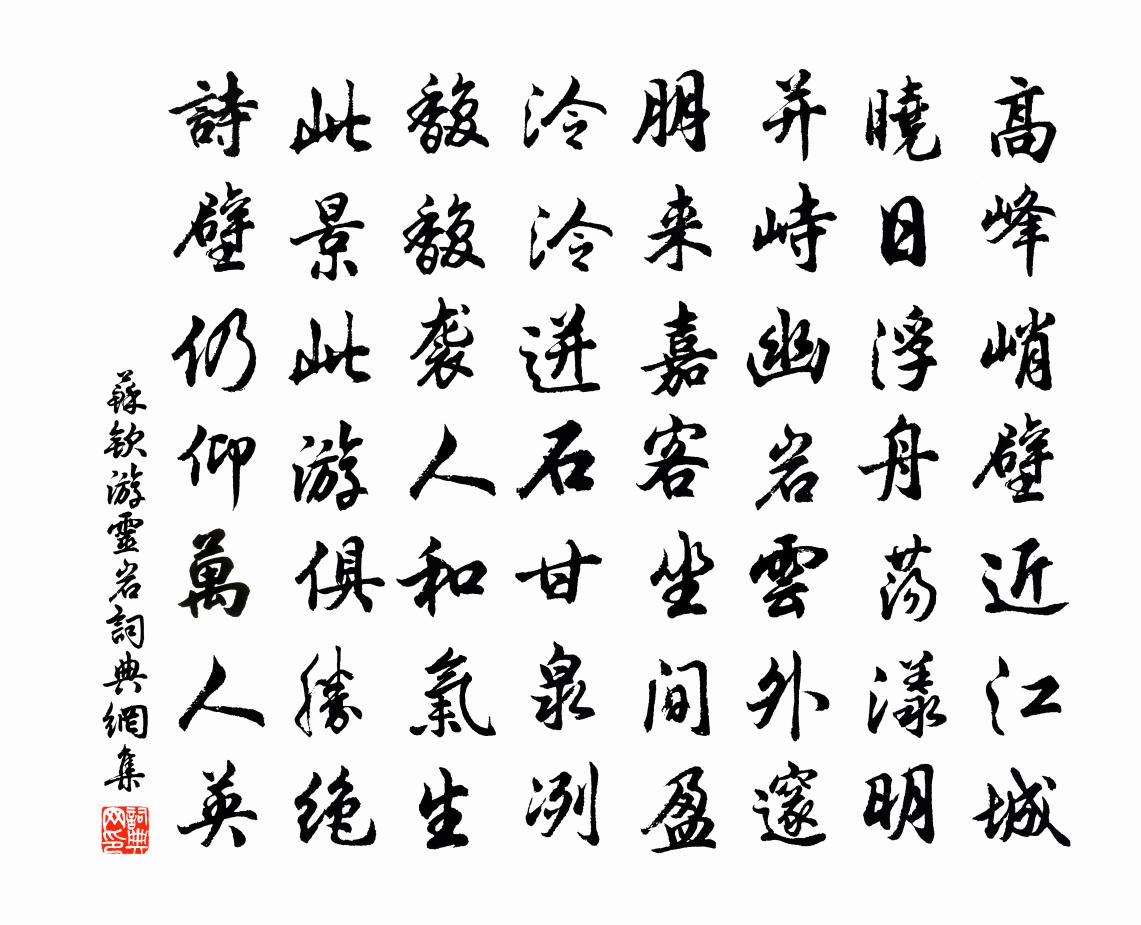 高峰峭壁近江城
曉日浮舟蕩漾明
并峙幽岩雲外邃
朋来嘉客坐間盈
泠泠迸石甘泉冽
馥馥袭人和氣生
此景此游俱勝绝
詩壁仍仰萬人英
蘇欽游靈岩詞典網集
詞典网印